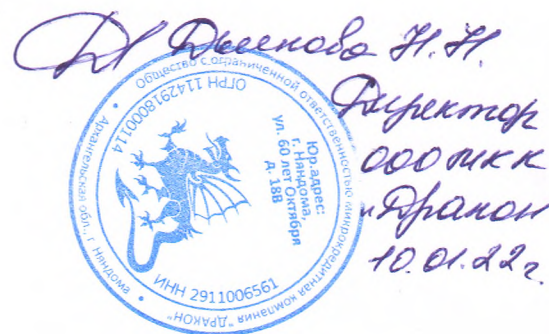 Дьенова Н.Н.
Директор
ООО МКК
"Дракон
10.01.22г.
Общество с ограниченной ответственностью микрокредитная компания "ДРАКОН"
Архангельская обл., г. Няндома
ОГРН 1142918000114
Юр.адрес:
г. Няндома,
ул. 60 лет Октября
д. 18В
ИНН 2911006561